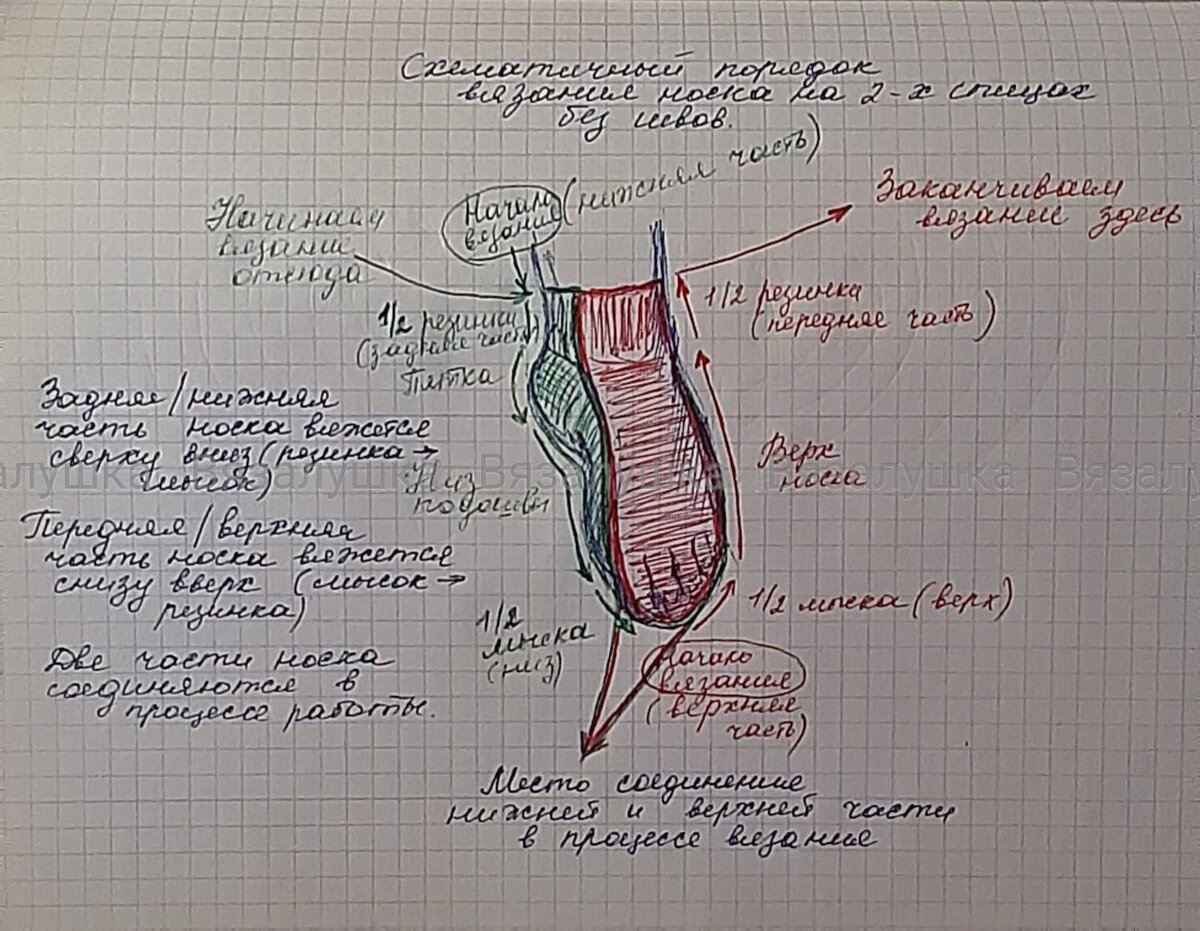 Схематичный порядок
вязания носка на 2-х спицах
без швов.
Начинаем
вязание
отсюда
Начало
вязания
(нижняя часть)
Заканчиваем
вязание здесь
1/2 резинки
(задняя часть)
Пятка
1/2 резинка
(передняя часть)
Задняя/нижняя
часть носка вяжется
сверху вниз (резинка →
мысок)
Низ
подошвы
Верх
носка
Вязалушка Вязалушка Вязалушка Вязалушка
Передняя/верхняя
часть носка вяжется
снизу вверх (мысок →
резинка)
1/2
мыска
(низ)
1/2 мыска (верх)
Две части носка
соединяются в
процессе работы.
Начало
вязания
(верхняя
часть)
Место соединение
нижней и верхней части
в процессе вязания